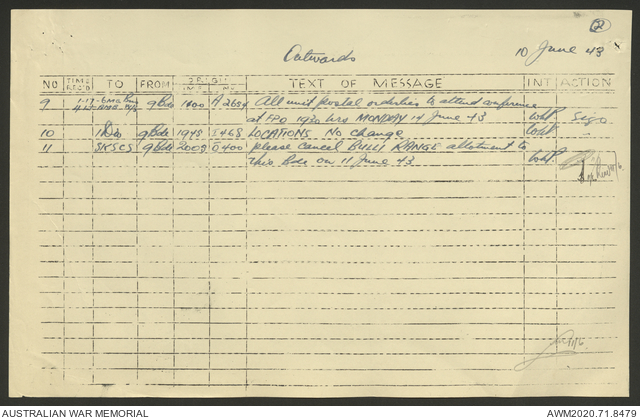 2
Outwards 10 June 43
NO TIME REC'D TO FROM ORIGIN TEXT OF MESSAGE INT ACTION
9 9 Bde 1800 All unit postal orderlies to attend conference
at FPO 1930 hrs MONDAY 14 June 43 Sigo
10 1 Div 9 Bde 1945 I 468 LOCATIONS. No change. -
11 SKSCS 9 Bde 2009 O 400 please cancel BULLI RANGE allotment to
this Bde on 11 June 43.
AUSTRALIAN WAR MEMORIAL AWM2020.71.8479